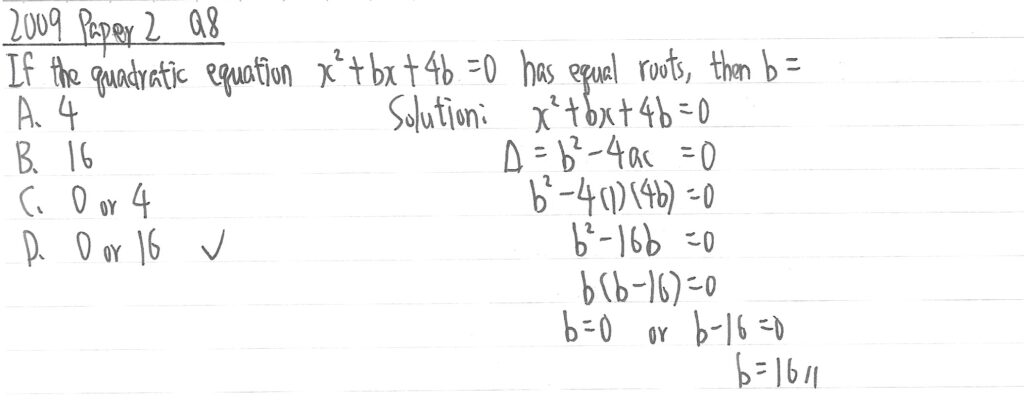 2009 Paper 2 Q8
If the quadratic equation x²+bx+4b=0 has equal roots, then b=
A. 4
B. 16
C. 0 or 4
D. 0 or 16 ✓
Solution: x²+bx+4b=0
Δ = b²-4ac = 0
b²-4(1)(4b) = 0
b²-16b = 0
b(b-16)=0
b=0 or b-16=0
b=16//